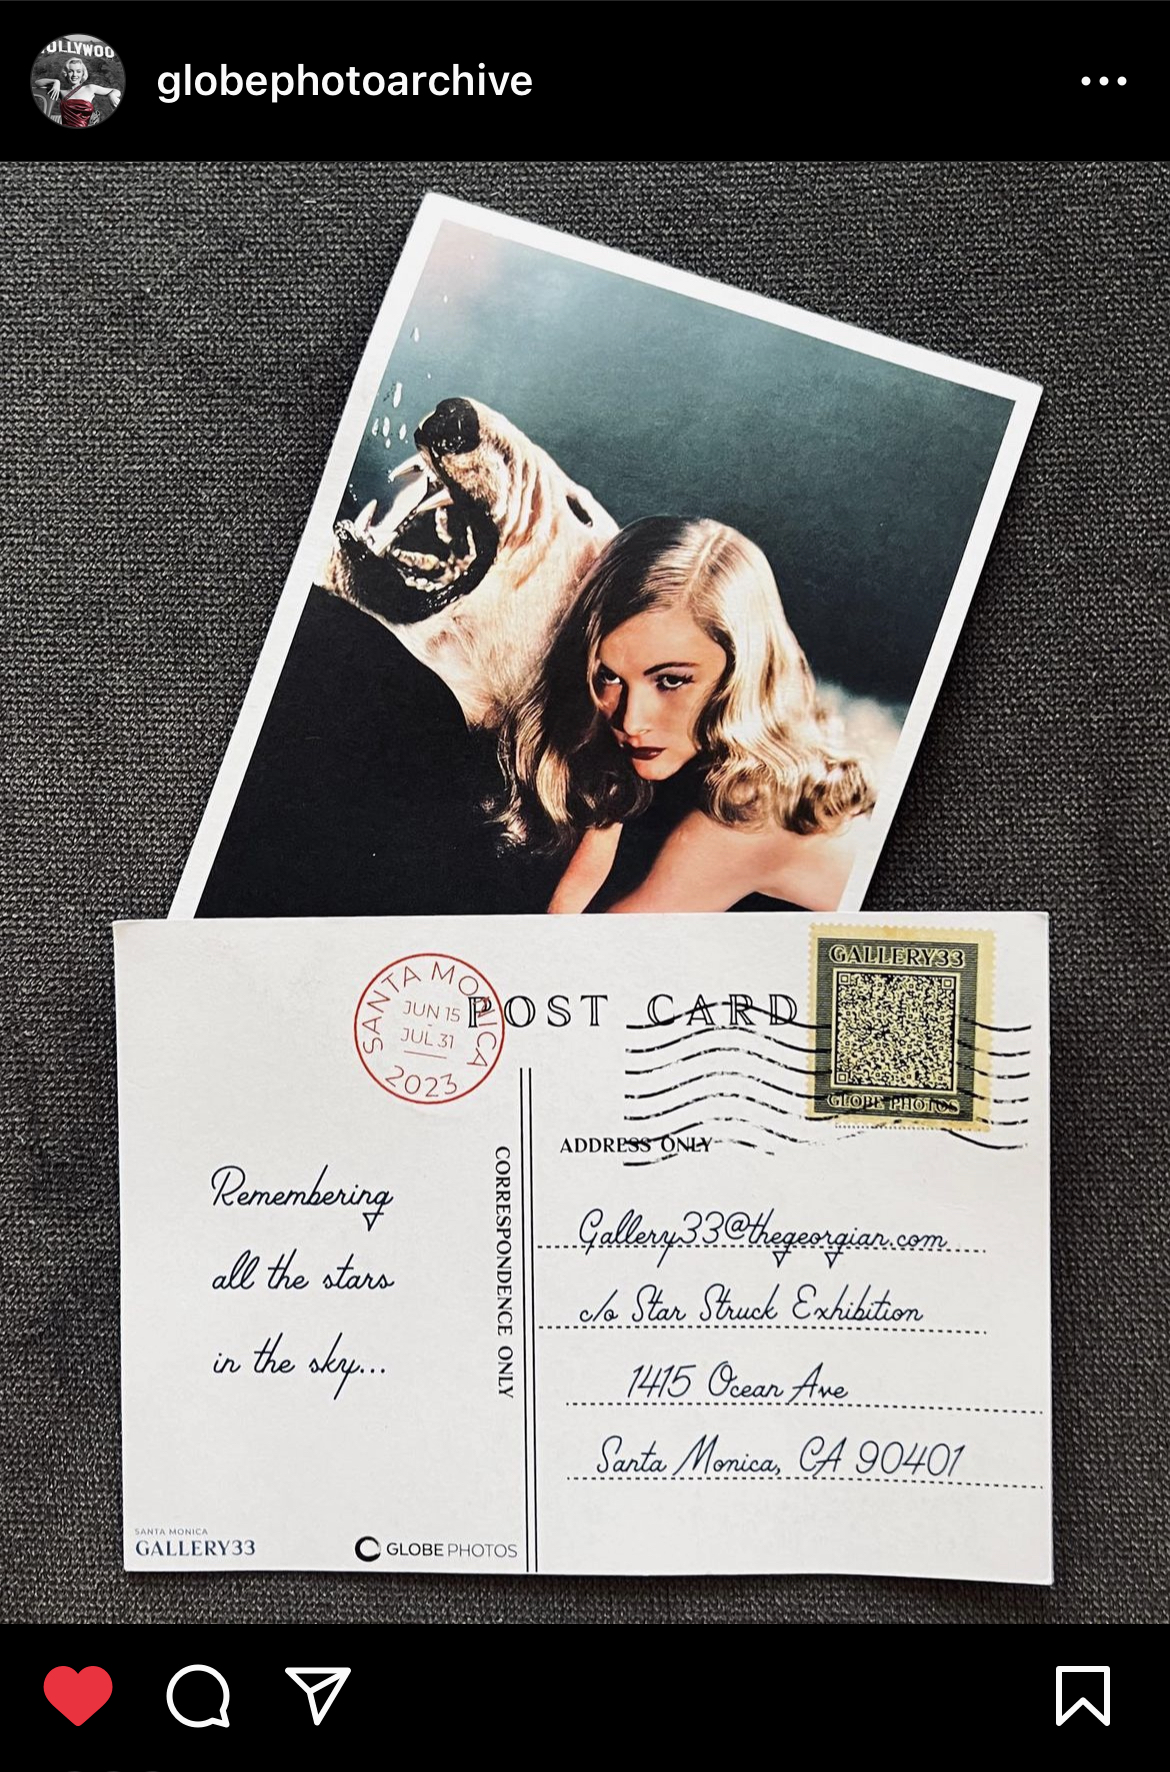 OLLYWOO
globephotoarchive
SANTA MONICA
JUN 15
-
JUL 31
2023
POST CARD
GALLERY33
GLOBE PHOTOS
ADDRESS ONLY
CORRESPONDENCE ONLY
Remembering
all the stars
in the sky...
Gallery33@thegeorgian.com
c/o Star Struck Exhibition
1415 Ocean Ave
Santa Monica, CA 90401
SANTA MONICA
GALLERY33
GLOBE PHOTOS